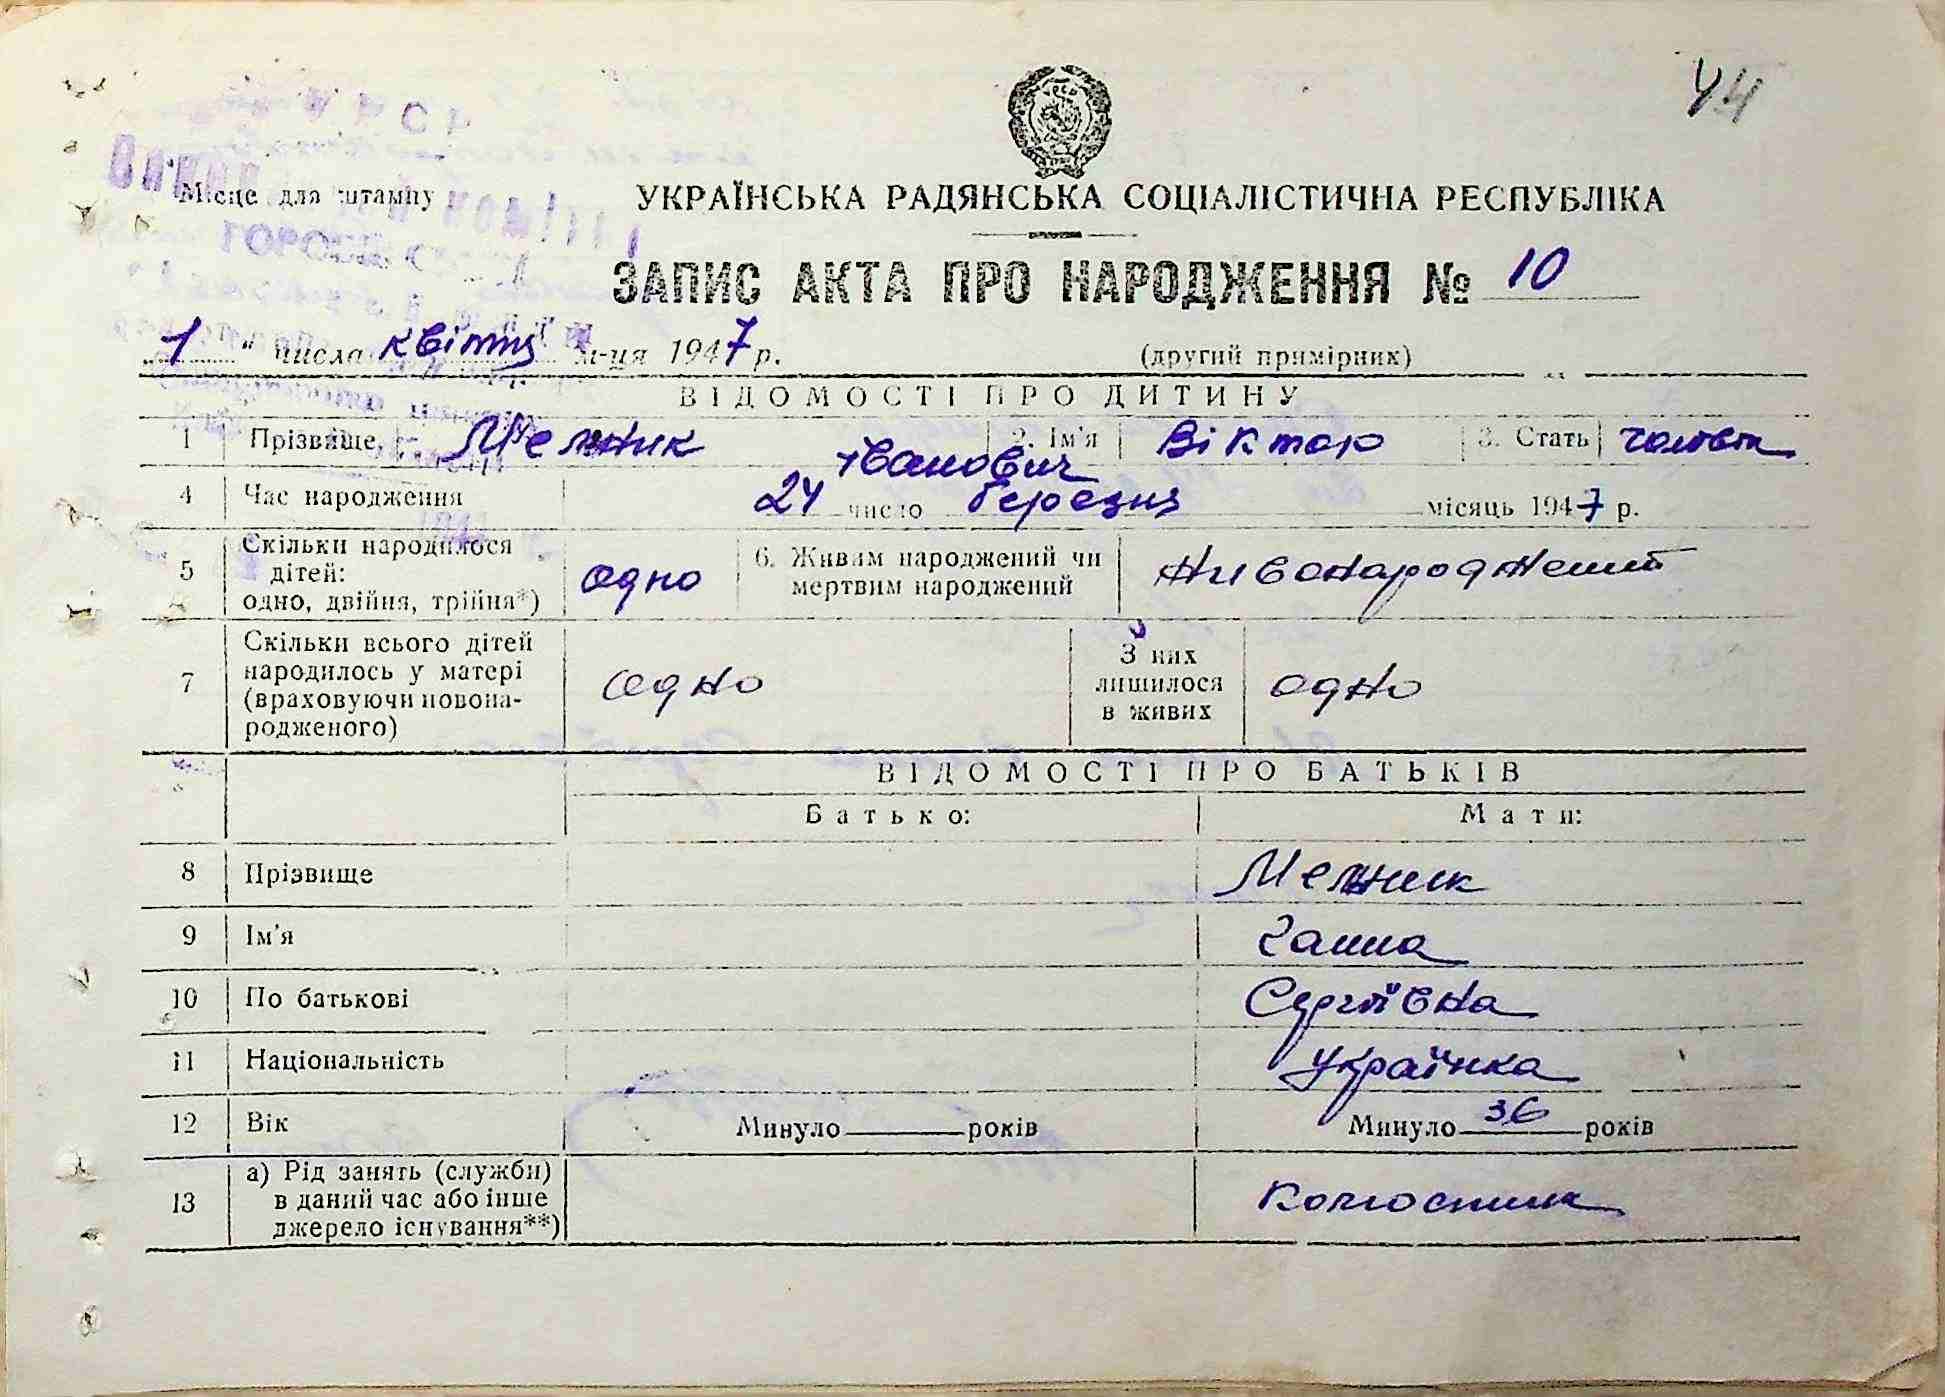 44
УРСР
Місце для штампу
УКРАЇНСЬКА РАДЯНСЬКА СОЦІАЛІСТИЧНА РЕСПУБЛІКА
ЗАПИС АКТА ПРО НАРОДЖЕННЯ № 10
„1" числа квітня м-ця 1947 р. (другий примірник)
ВІДОМОСТІ ПРО ДИТИНУ
1 Прізвище Мельник 2. Ім'я Віктор 3. Стать
Іванович
4 Час народження 24 число березня місяць 1947 р.
5 Скільки народилося дітей: одно, двійня, трійня*) одно 6. Живим народжений чи мертвим народжений живонароджений
7 Скільки всього дітей народилось у матері (враховуючи новонародженого) одно З них лишилося в живих одно
ВІДОМОСТІ ПРО БАТЬКІВ
Батько: Мати:
8 Прізвище Мельник
9 Ім'я Ганна
10 По батькові Сергіївна
11 Національність Українка
12 Вік Минуло років Минуло 36 років
13 а) Рід занять (служби) в даний час або інше джерело існування**) Колгоспниця